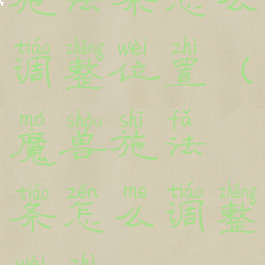 施法条怎么
tiáo zhěng wèi zhì
调整位置（
mó shòu shī fǎ
魔兽施法
tiáo zěn me tiáo zhěng
条怎么调整
wèi zhì